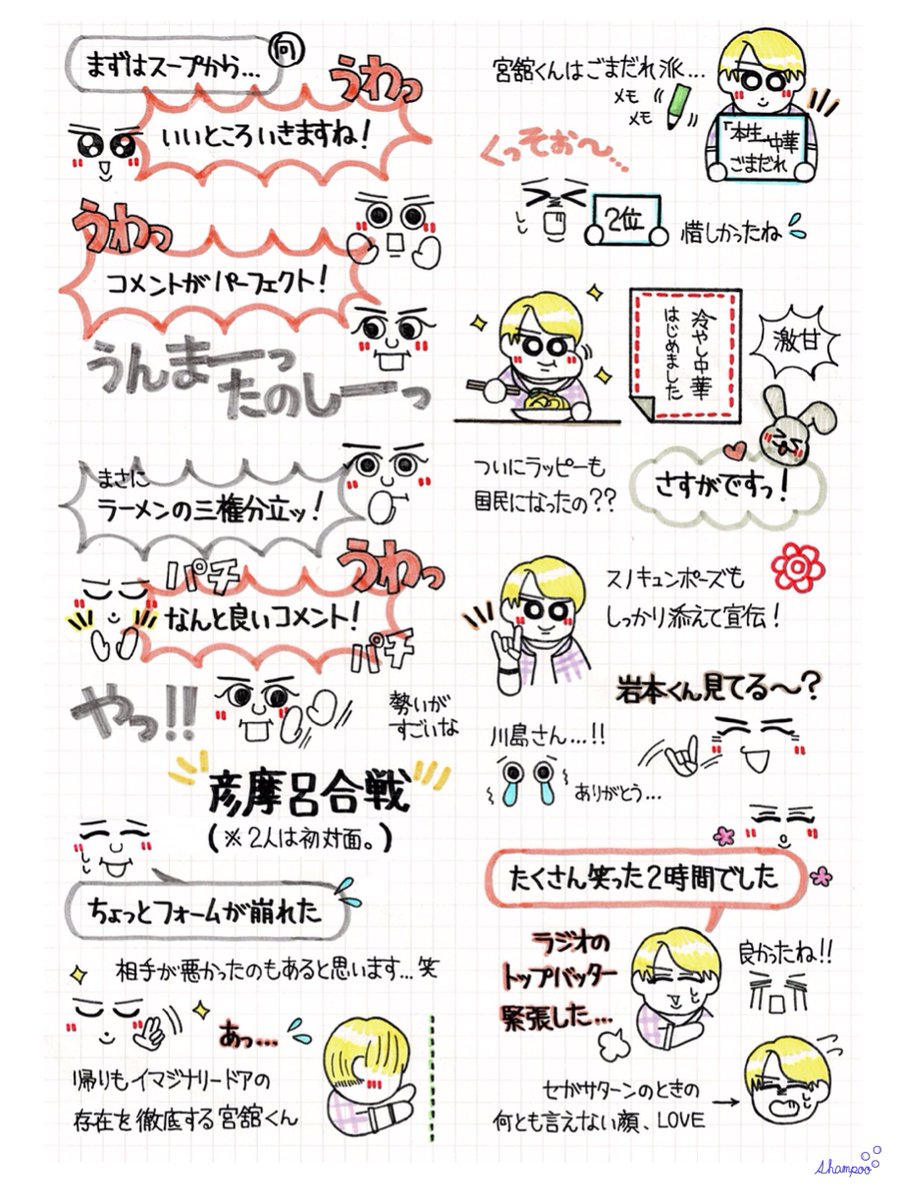 まずはスープから…
向
うわっ
いいところいきますね!
うわっ
コメントがパーフェクト!
うんまーっ
たのしーーっ
まさに
ラーメンの三権分立ッ!
パチ
うわっ
なんと良いコメント!
パチ
やっ!!
勢いが
すごいな
彦摩呂合戦
(※2人は初対面。)
ちょっとフォームが崩れた
相手が悪かったのもあると思います…笑
あっ…
帰りもイマジナリードアの
存在を徹底する宮舘くん
宮舘くんはごまだれ派…
メモ
メモ
「本生」中華
ごまだれ
くっそお〜…
2位
惜しかったね
冷やし中華
はじめました
激甘
ついにラッピーも
国民になったの??
さすがですっ!
スノキュンポーズも
しっかり添えて宣伝!
岩本くん見てる〜?
川島さん…!!
ありがとう…
たくさん笑った2時間でした
ラジオの
トップバッター
緊張した…
良かったね!!
セガサターンのときの
何とも言えない顔、LOVE
Shampoo